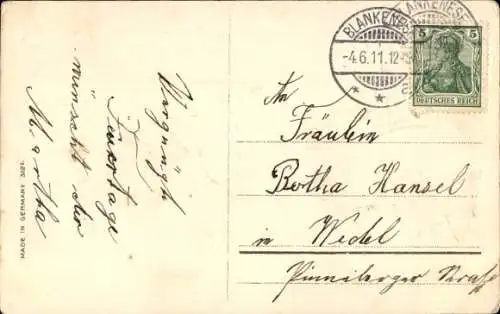 Vergnügte
Feiertage
wünscht dir
Martha
MADE IN GERMANY
BLANKENESE
-4.6.11.12-
BLANKENESE
5 5
DEUTSCHES REICH
An
Fräulein
Bertha Hansel
in Wedel
Pinneberger Straße